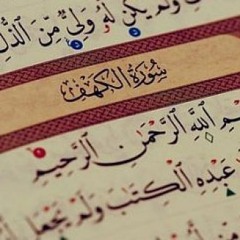 وَلَمْ يَكُن لَّهُۥ وَلِىٌّ مِّنَ ٱلذُّلِّ
سُورَةُ الْكَهْفِ
ٱللَّهِ ٱلرَّحْمَٰنِ ٱلرَّحِيمِ
عَبْدِهِ ٱلْكِتَٰبَ وَلَمْ يَجْعَل